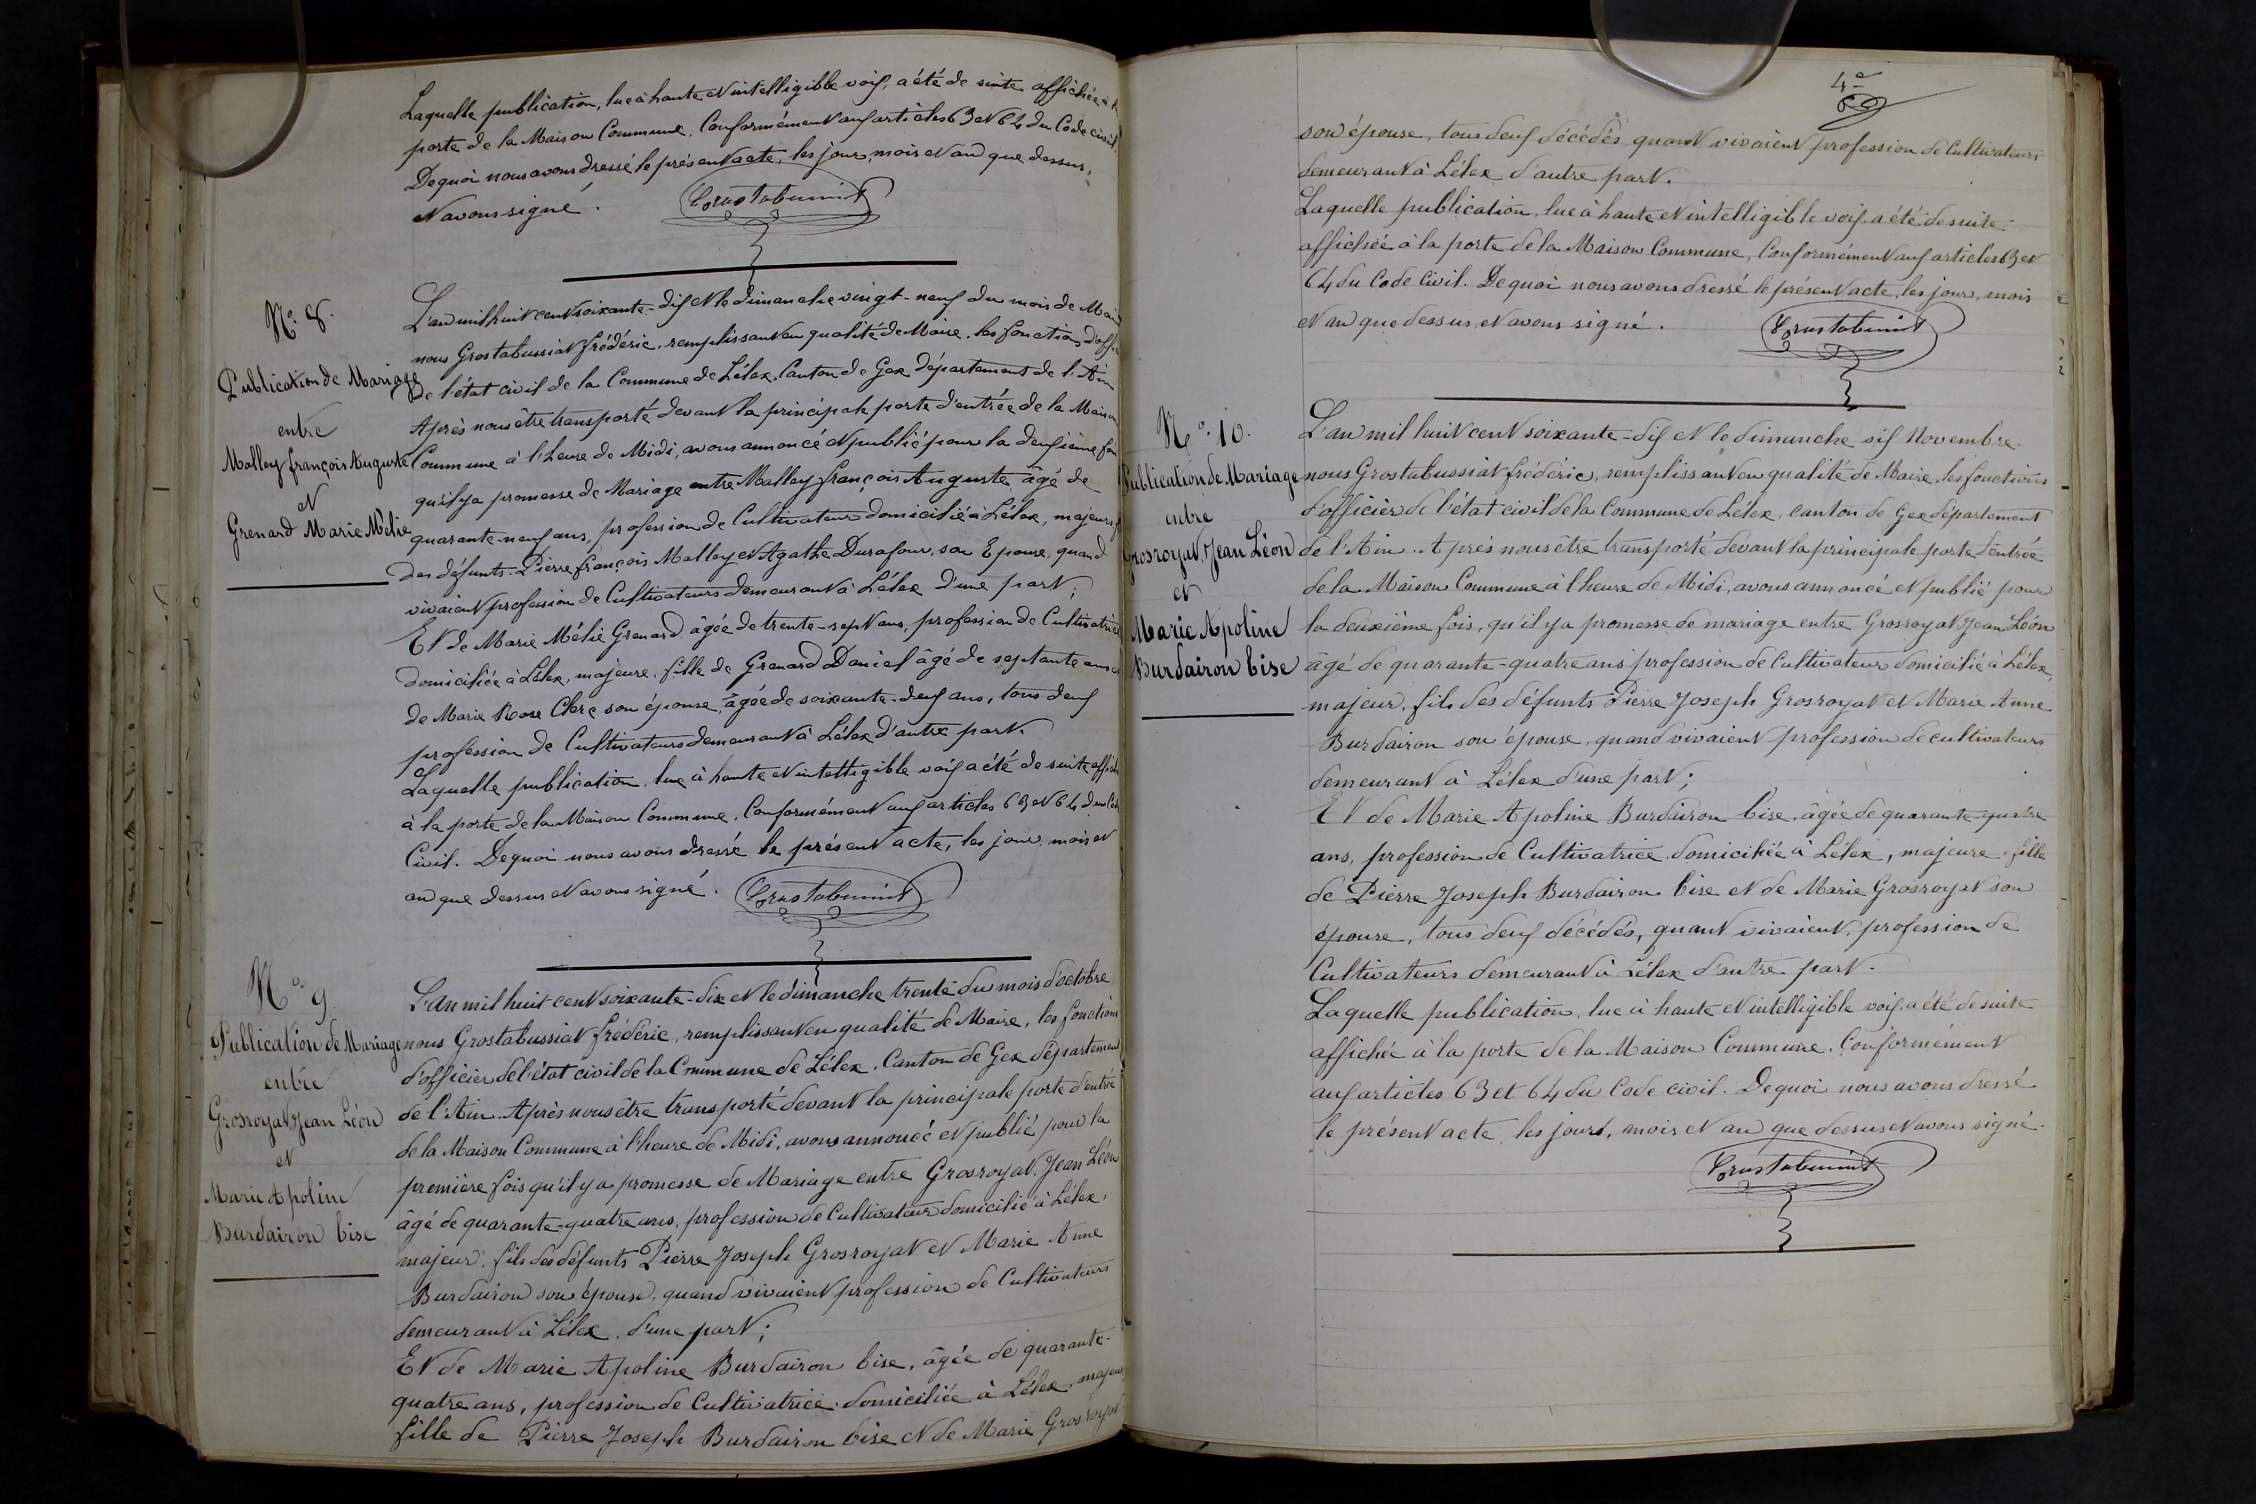 Laquelle publication, lue à haute et intelligible voix, a été de suite affichée à la
porte de la Maison Commune, Conformément aux articles 63 et 64 du Code civil.
Dequoi nous avons dressé le présent acte, les jour, mois et an que dessus,
et avons signé.
N° 8.
Publication de Mariage
entre
Malley françois Auguste
et
Grenard Marie Mélie
L'an mil huit cent soixante-dix et le dimanche vingt-neuf du mois de Mai
nous Grostabussiat frédéric, remplissant en qualité de Maire, les fonctions d'offi
De l'état civil de la Commune de Lélex, Canton de Gex département de l'Ain
Après nous être transporté devant la principale porte d'entrée de la Maison
Commune à l'heure de Midi, avons annoncé et publié pour la deuxième fois
qu'il y a promesse de Mariage entre Malley françois Auguste âgé de
quarante-neuf ans, profession de Cultivateur domicilié à Lélex, majeur, f
des défunts Pierre françois Malley et Agathe Durafour, son Epouse, quand
vivaient profession de Cultivateurs demeurant à Lélex d'une part;
Et de Marie Mélie Grenard âgée de trente-sept ans, profession de Cultivatrice
domiciliée à Lélex, majeure, fille de Grenard Daniel âgé de septante ans et
de Marie Rose Clerc son épouse, âgée de soixante-deux ans, tous deux
profession de Cultivateurs demeurant à Lélex d'autre part.
Laquelle publication, lue à haute et intelligible voix a été de suite affichée
à la porte de la Maison Commune, Conformément aux articles 63 et 64 du Code
Civil. Dequoi nous avons dressé le présent acte, les jour, mois et
an que dessus et avons signé.
N° 9.
Publication de Mariage
entre
Grosroyat Jean Léon
et
Marie Apoline
Burdairon bise
L'An mil huit cent soixante-dix et le dimanche trente du mois d'octobre
nous Grostabussiat frédéric, remplissant en qualité de Maire, les fonctions
d'officier de l'état civil de la Commune de Lélex, Canton de Gex département
de l'Ain. Après nous être transporté devant la principale porte d'entrée
de la Maison Commune à l'heure de Midi, avons annoncé et publié pour la
première fois qu'il y a promesse de Mariage entre Grosroyat Jean Léon
âgé de quarante-quatre ans, profession de Cultivateur domicilié à Lélex,
majeur, fils des défunts Pierre Joseph Grosroyat et Marie Anne
Burdairon son épouse, quand vivaient profession de Cultivateurs
demeurant à Lélex, d'une part;
Et de Marie Apoline Burdairon bise, âgée de quarante-
quatre ans, profession de Cultivatrice domiciliée à Lélex, majeure
fille de Pierre Joseph Burdairon bise et de Marie Grosroyat
4e
son épouse, tous deux décédés quant vivaient profession de Cultivateurs
demeurant à Lélex d'autre part.
Laquelle publication, lue à haute et intelligible voix a été de suite
affichée à la porte de la Maison Commune, Conformément aux articles 63 et
64 du Code Civil. Dequoi nous avons dressé le présent acte, les jour, mois
et an que dessus, et avons signé.
N° 10.
Publication de Mariage
entre
Grosroyat Jean Léon
et
Marie Apoline
Burdairon bise
L'an mil huit cent soixante-dix et le dimanche six Novembre
nous Grostabussiat frédéric, remplissant en qualité de Maire, les fonctions
d'officier de l'état civil de la Commune de Lélex, canton de Gex département
de l'Ain. Après nous être transporté devant la principale porte d'entrée
de la Maison Commune à l'heure de Midi, avons annoncé et publié pour
la deuxième fois, qu'il y a promesse de mariage entre Grosroyat Jean Léon
âgé de quarante-quatre ans profession de Cultivateur domicilié à Lélex,
majeur, fils des défunts Pierre Joseph Grosroyat et Marie Anne
Burdairon son épouse, quand vivaient profession de cultivateurs
demeurant à Lélex d'une part;
Et de Marie Apoline Burdairon bise, âgée de quarante-quatre
ans, profession de Cultivatrice domiciliée à Lélex, majeure, fille
de Pierre Joseph Burdairon bise et de Marie Grosroyat son
épouse, tous deux décédés, quant vivaient, profession de
Cultivateurs demeurant à Lélex d'autre part.
Laquelle publication, lue à haute et intelligible voix a été de suite
affichée à la porte de la Maison Commune, Conformément
aux articles 63 et 64 du Code civil. Dequoi nous avons dressé
le présent acte, les jours, mois et an que dessus et avons signé.